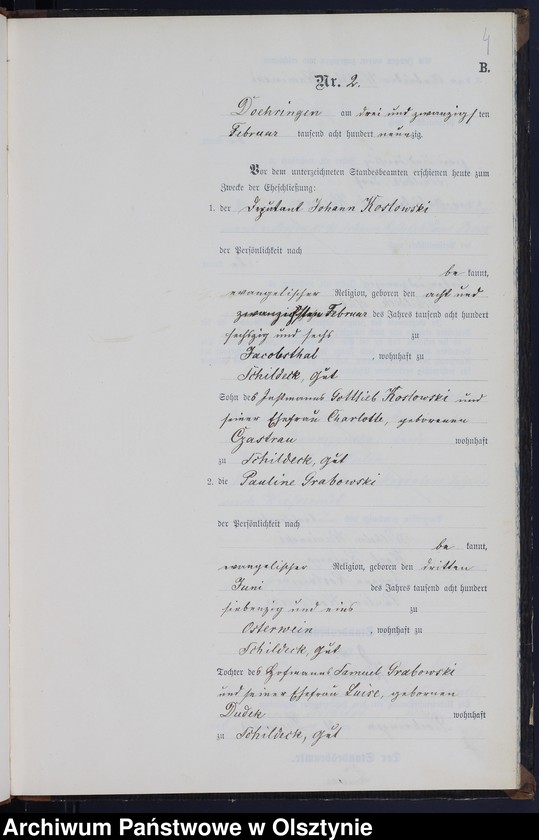 4
B.
Nr. 2.
Doehringen am drei und zwanzig/ten
Februar tausend acht hundert neunzig.
Vor dem unterzeichneten Standesbeamten erschienen heute zum
Zwecke der Eheschließung:
1. der Deputant Johann Koslowski
der Persönlichkeit nach
be kannt,
evangelischer Religion, geboren den acht und
zwanzigsten Februar des Jahres tausend acht hundert
sechszig und sechs zu
Jacobsthal, wohnhaft zu
Schildeck, Gut
Sohn des Instmanns Gottlieb Koslowski und
seiner Ehefrau Charlotte, geborenen
Czastrau wohnhaft
zu Schildeck, Gut
2. die Pauline Grabowski
der Persönlichkeit nach
be kannt,
evangelischer Religion, geboren den dritten
Juni des Jahres tausend acht hundert
siebenzig und eins zu
Osterwein, wohnhaft zu
Schildeck, Gut
Tochter des Hofmanns Samuel Grabowski
und seiner Ehefrau Luise, gebornen
Dudek wohnhaft
zu Schildeck, Gut
Archiwum Państwowe w Olsztynie